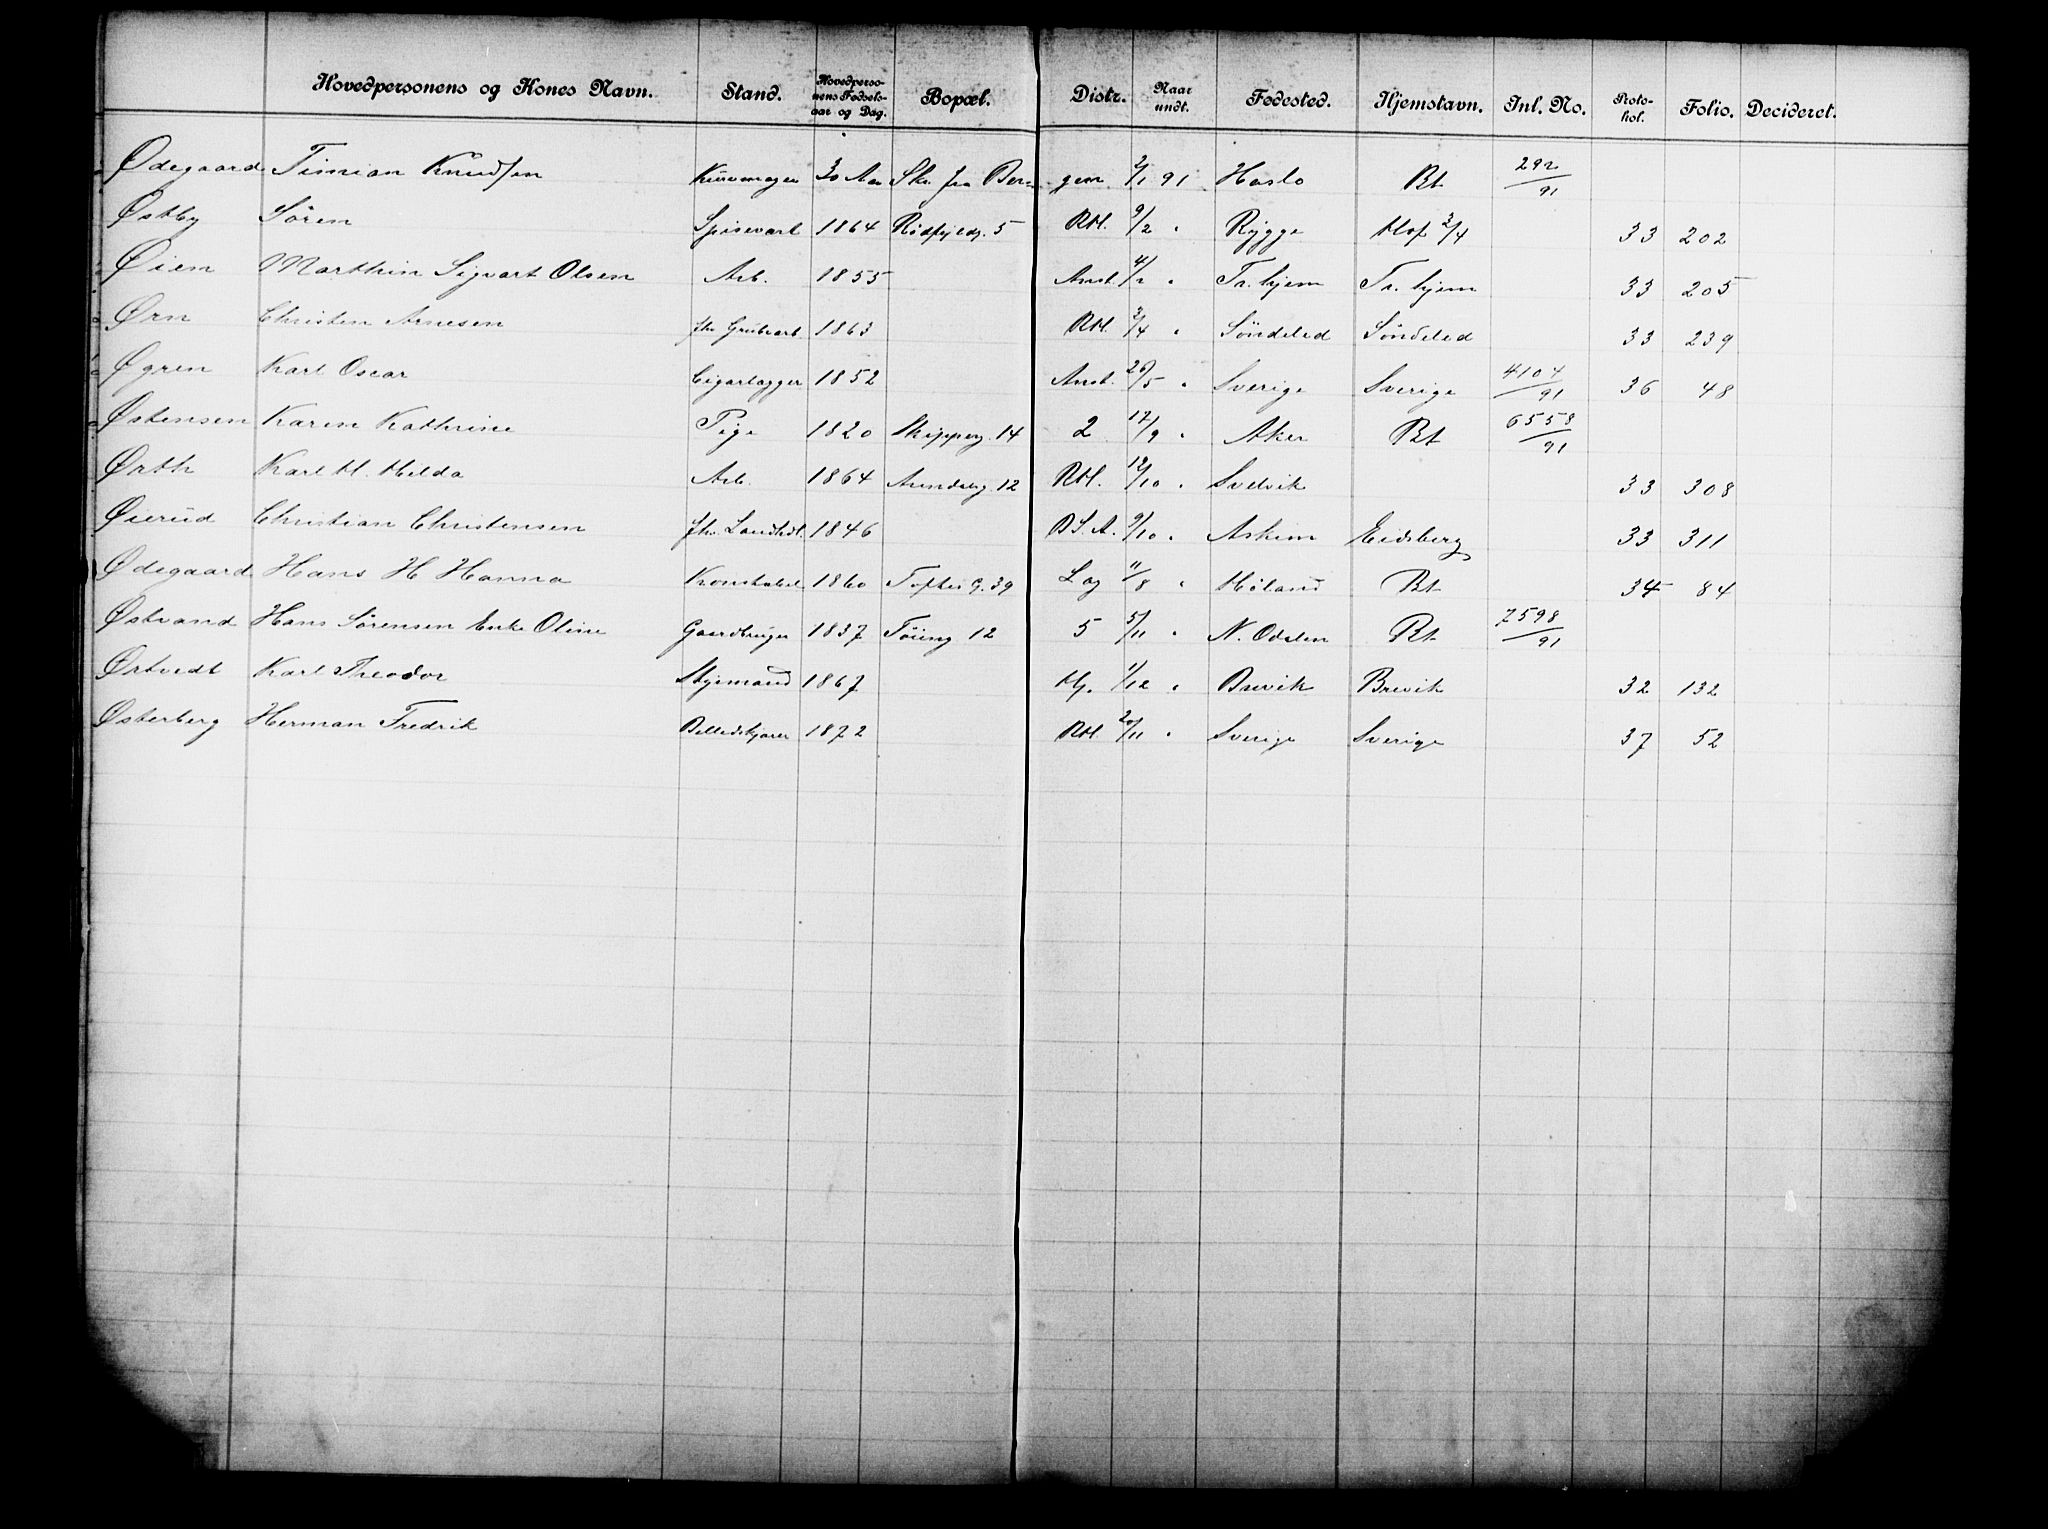 Hovedpersonens og Kones Navn. Stand. Hovedperso-nens Fødsels-aar og Dag. Bopæl. Distr. Naar undt. Fødested. Hjemstavn. Inl. No. Proto-kol. Folio. Decideret.
Ødegaard Timian Knudsen Kurvmager 30 Aar Skr. fra Ber gen 2/1 91 Haslo Bt 292/91
Østby Søren Spisevært 1864 Rødfyldg. 5 RM. 9/2 " Rygge Hof 3/4 33 202
Øien Marthin Sigvart Olsen Arb. 1855 Anst. 4/2 " Tr.hjem Tr.hjem 33 205
Ørn Christen Arnesen fhv. Grubearb. 1863 RM. 3/4 " Søndeled Søndeled 33 239
Øgren Karl Oscar Cigarlægger 1852 Anst. 26/5 " Sverige Sverige 4104/91 36 48
Østensen Karen Kathrine Pige 1820 Skipperg. 14 2 12/9 " Aker Bt 6558/91
Ørth Karl M. Hilda Arb. 1864 Arendalsg. 12 RM. 12/10 " Svelvik 33 308
Øierud Christian Christensen fhv. Landhdl. 1846 B.S.A. 9/10 " Askim Eidsberg 33 311
Ødegaard Hans H Hanna Konstabel 1860 Toftes G. 39 Lag 11/8 " Høland Bt 34 84
Østvand Hans Sørensen Enke Oline Gaardbruger 1837 Tøieng 12 5 5/11 " N. Odalen Bt 7598/91
Ørtvedt Karl Theodor Styrmand 1867 Hj. 1/12 " Brevik Brevik 32 132
Østerberg Herman Fredrik Billedskjærer 1872 RM 20/11 " Sverige Sverige 37 52